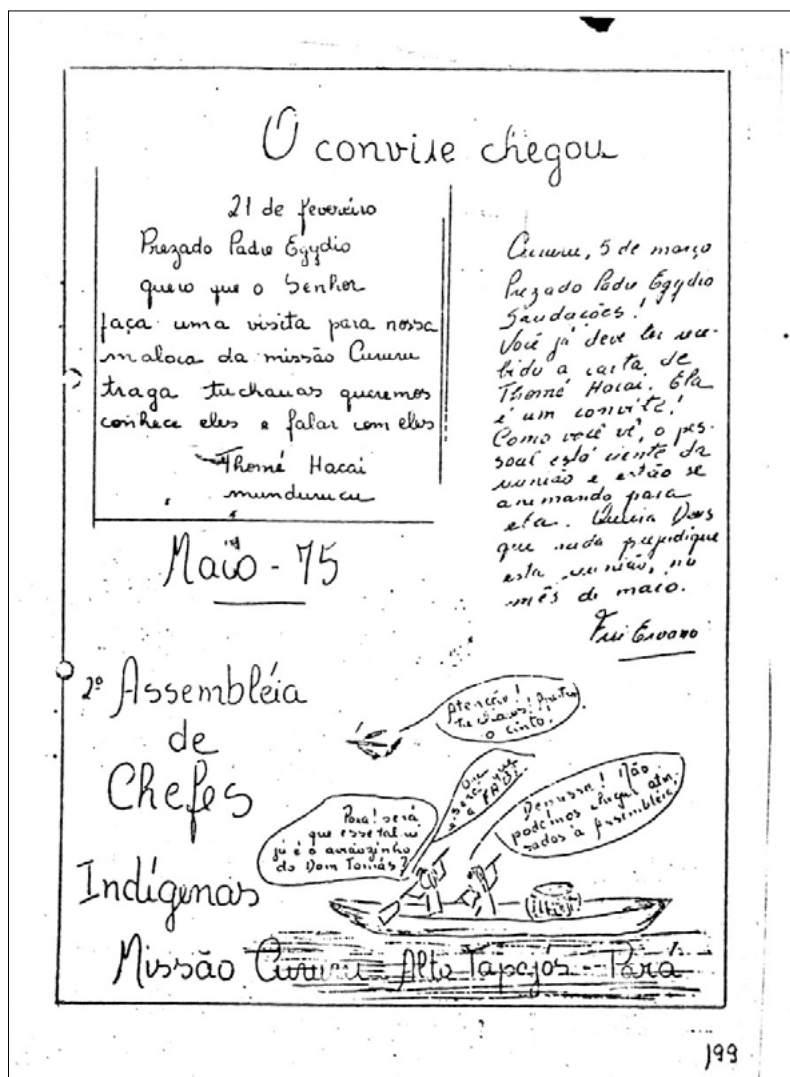 O convite chegou
21 de fevereiro
Prezado Padre Egydio
quero que o Senhor
faça uma visita para nossa
maloca da missão Cururu
traga tuchauas queremos
conhece eles e falar com eles
Thomé Hacai
munduruCu
Cururu, 5 de março
Prezado Padre Egydio
Saudações!
Você já deve ter rece-
bido a carta de
Thomé Hacai. Ela
é um convite!
Como você vê, o pes-
soal está ciente da
reunião e estão se
animando para
ela. Queira Deus
que nada prejudique
esta reunião, no
mês de maio.
Frei
Maio - 75
2º Assembléia
de
Chefes
Indígenas
Missão Cururu - Alto Tapajós - Pará
Atenção!
tuchauas!
o cinto!
Ou
será que
é FAB?
Para! será
que esse tal
já é o aviãozinho
do Dom Tomás?
Não
podemos chegar atra-
sados à Assembléia!
199